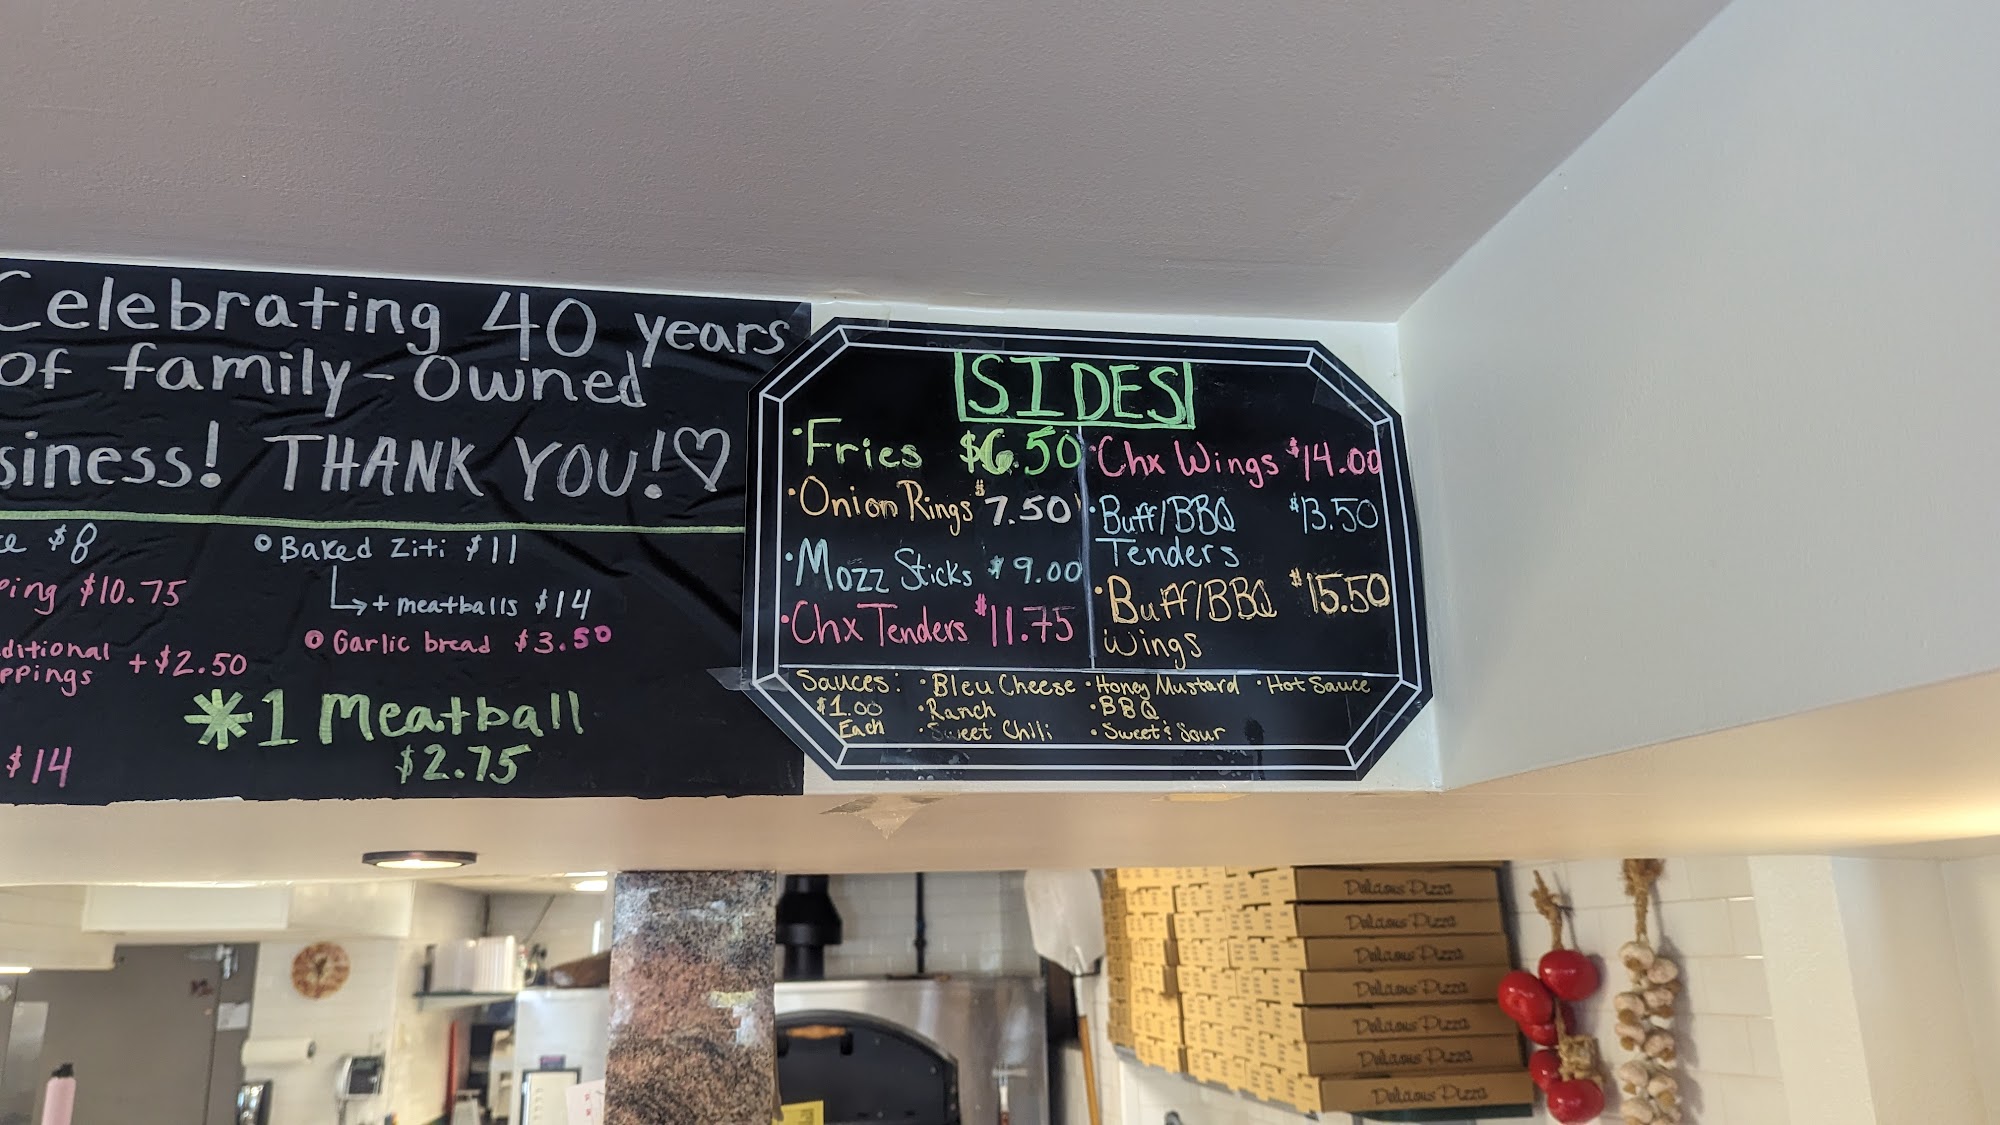 Celebrating 40 years
of family-owned
siness! THANK YOU!♡
$8
ping $10.75
ditional
ppings + $2.50
$14
Baked Ziti $11
+ meatballs $14
Garlic bread $3.50
*1 Meatball
$2.75
SIDES
• Fries $6.50
• Onion Rings $7.50
• Mozz Sticks $9.00
• Chx Tenders $11.75
• Chx Wings $14.00
• Buff/BBQ $13.50
Tenders
• Buff/BBQ $15.50
Wings
Sauces: • Bleu Cheese • Honey Mustard • Hot Sauce
$1.00 • Ranch • BBQ
Each • Sweet Chili • Sweet & Sour
Delicious Pizza
Delicious Pizza
Delicious Pizza
Delicious Pizza
Delicious Pizza
Delicious Pizza
Delicious Pizza